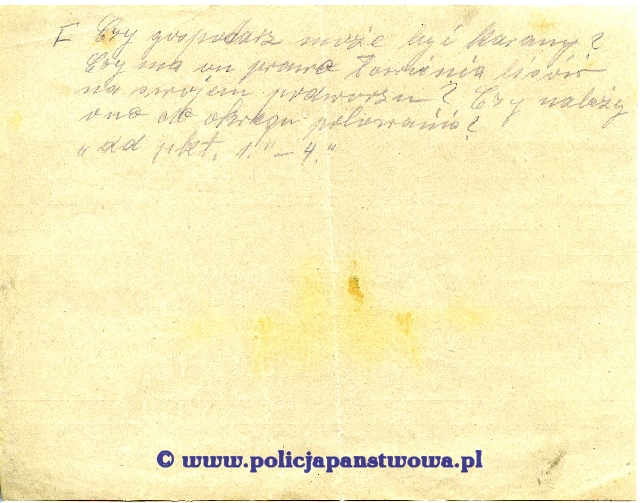 I Czy gospodarz może być karany?
Czy ma on prawo łowienia lisów
na swojem podwórzu? Czy należy
ono do okręgu polowania?
„ad pkt. 1." – 4."
© www.policjapanstwowa.pl